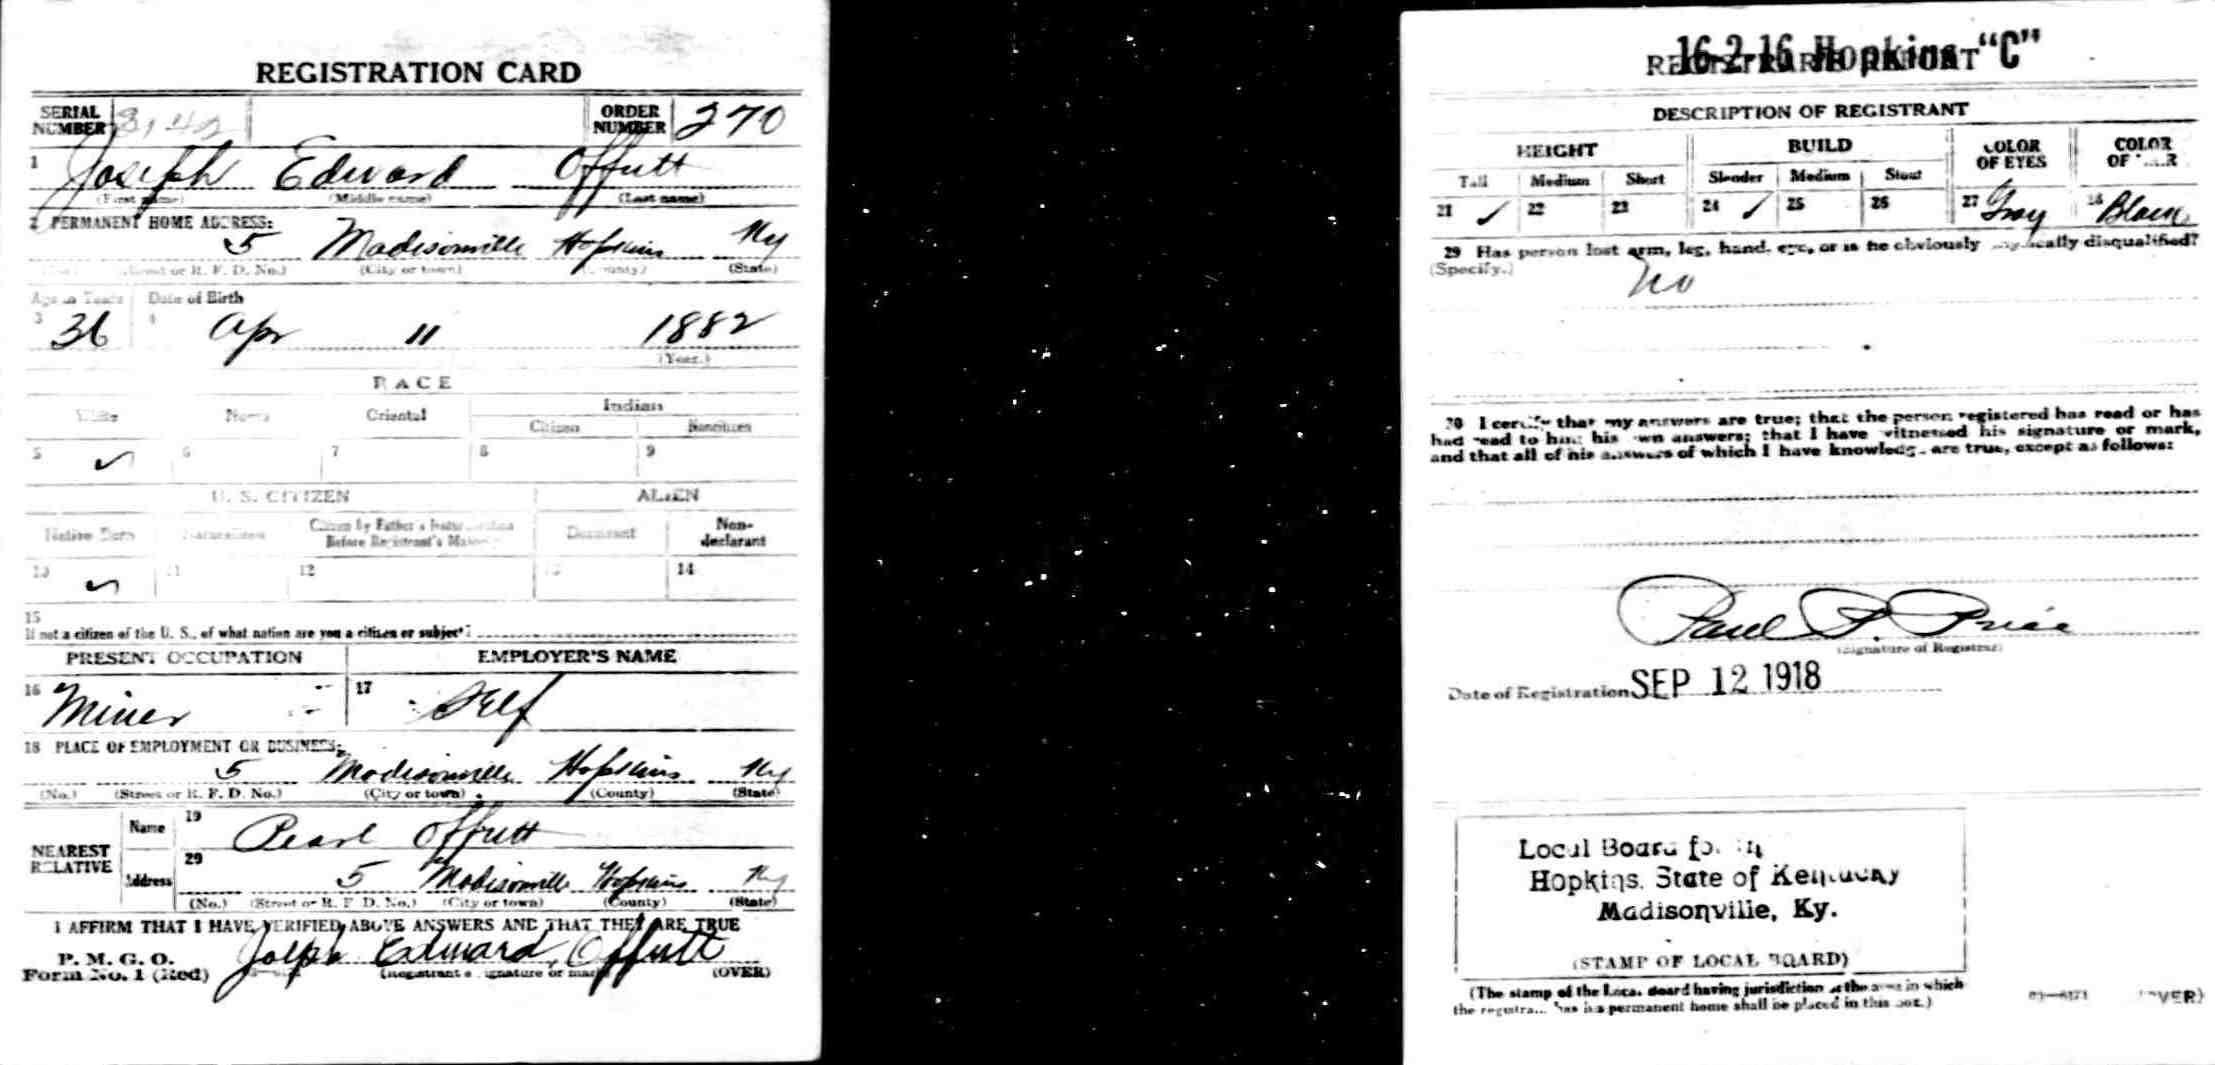 REGISTRATION CARD
SERIAL NUMBER 3142 ORDER NUMBER 270
1 Joseph Edward Offutt
(First name) (Middle name) (Last name)
2 PERMANENT HOME ADDRESS:
5 Madisonville Hopkins Ky
(Street or R. F. D. No.) (City or town) (County) (State)
Age in Years Date of Birth
3 36 4 Apr 11 1882
(Year.)
RACE
White Negro Oriental Indian
Citizen Noncitizen
5 ✓ 6 7 8 9
U. S. CITIZEN ALIEN
Native Born Naturalized Citizen by Father's Naturalization Before Registrant's Majority Declarant Non-declarant
10 ✓ 11 12 13 14
15
If not a citizen of the U. S., of what nation are you a citizen or subject?
PRESENT OCCUPATION EMPLOYER'S NAME
16 Miner 17 Self
18 PLACE OF EMPLOYMENT OR BUSINESS:
5 Madisonville Hopkins Ky
(No.) (Street or R. F. D. No.) (City or town) (County) (State)
NEAREST RELATIVE
Name 19 Pearl Offutt
Address 20 5 Madisonville Hopkins Ky
(No.) (Street or R. F. D. No.) (City or town) (County) (State)
I AFFIRM THAT I HAVE VERIFIED ABOVE ANSWERS AND THAT THEY ARE TRUE
P. M. G. O.
Form No. 1 (Red) Joseph Edward Offutt
(Registrant's signature or mark) (OVER)
REGISTRAR'S REPORT
16-2-16 Hopkins "C"
DESCRIPTION OF REGISTRANT
HEIGHT BUILD COLOR OF EYES COLOR OF HAIR
Tall Medium Short Slender Medium Stout
21 ✓ 22 23 24 ✓ 25 26 27 Gray 28
29 Has person lost arm, leg, hand, eye, or is he obviously physically disqualified?
(Specify.) No
30 I certify that my answers are true; that the person registered has read or has
had read to him his own answers; that I have witnessed his signature or mark,
and that all of his answers of which I have knowledge are true, except as follows:
Paul P. Price
(Signature of Registrar)
Date of Registration SEP 12 1918
Local Board for
Hopkins, State of Kentucky
Madisonville, Ky.
(STAMP OF LOCAL BOARD)
(The stamp of the Local Board having jurisdiction of the area in which
the registrant has his permanent home shall be placed in this box.)
(OVER)